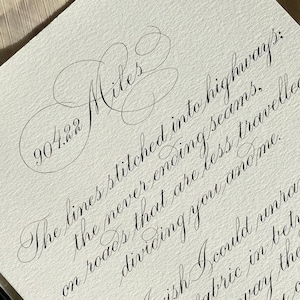 904.22 Miles
The lines stitched into highways;
the never ending seams,
on roads that are less travelled
dividing you and me.
wish I could unra
fabric in betw
way tho